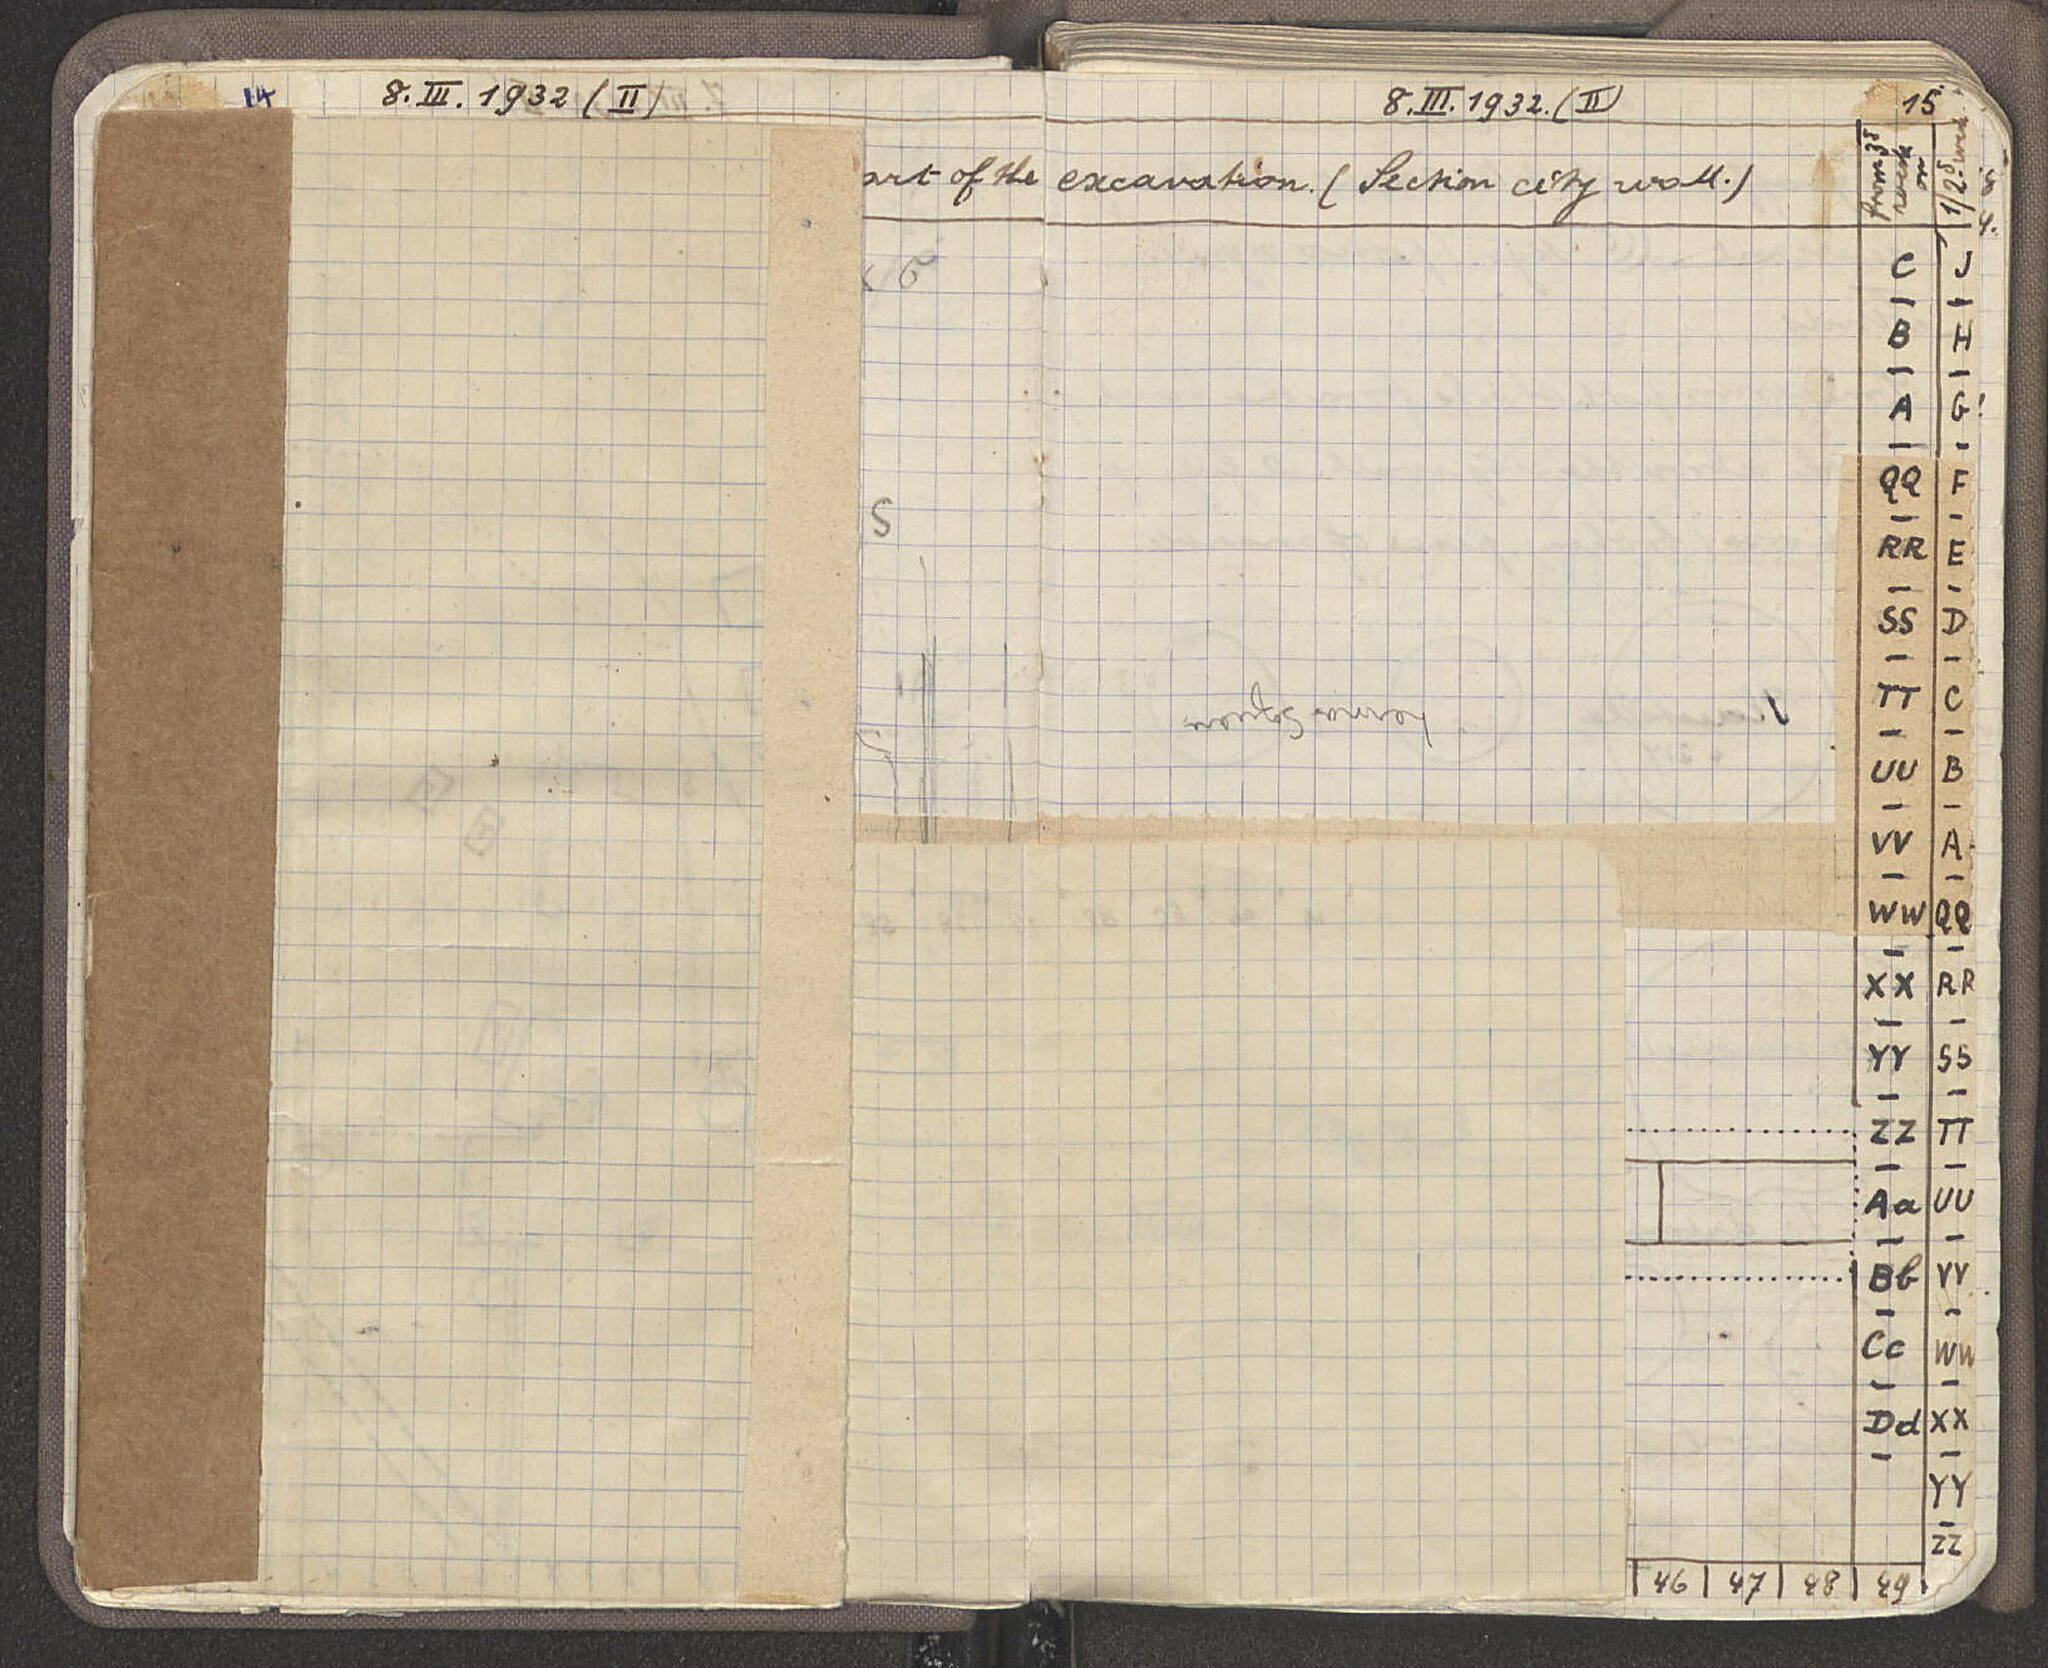 14
8.III.1932 (II)
8.III.1932. (II)
15
art of the excavation. (Section city wall.)
from 35 week on
1/2.
4.
S
C | J
B | H
A | G!
QQ | F
RR | E
SS | D
TT | C
UU | B
VV | A
WW | QQ
XX | RR
YY | SS
ZZ | TT
Aa | UU
Bb | VV
Cc | WW
Dd | XX
YY
ZZ
46 | 47 | 48 | 49